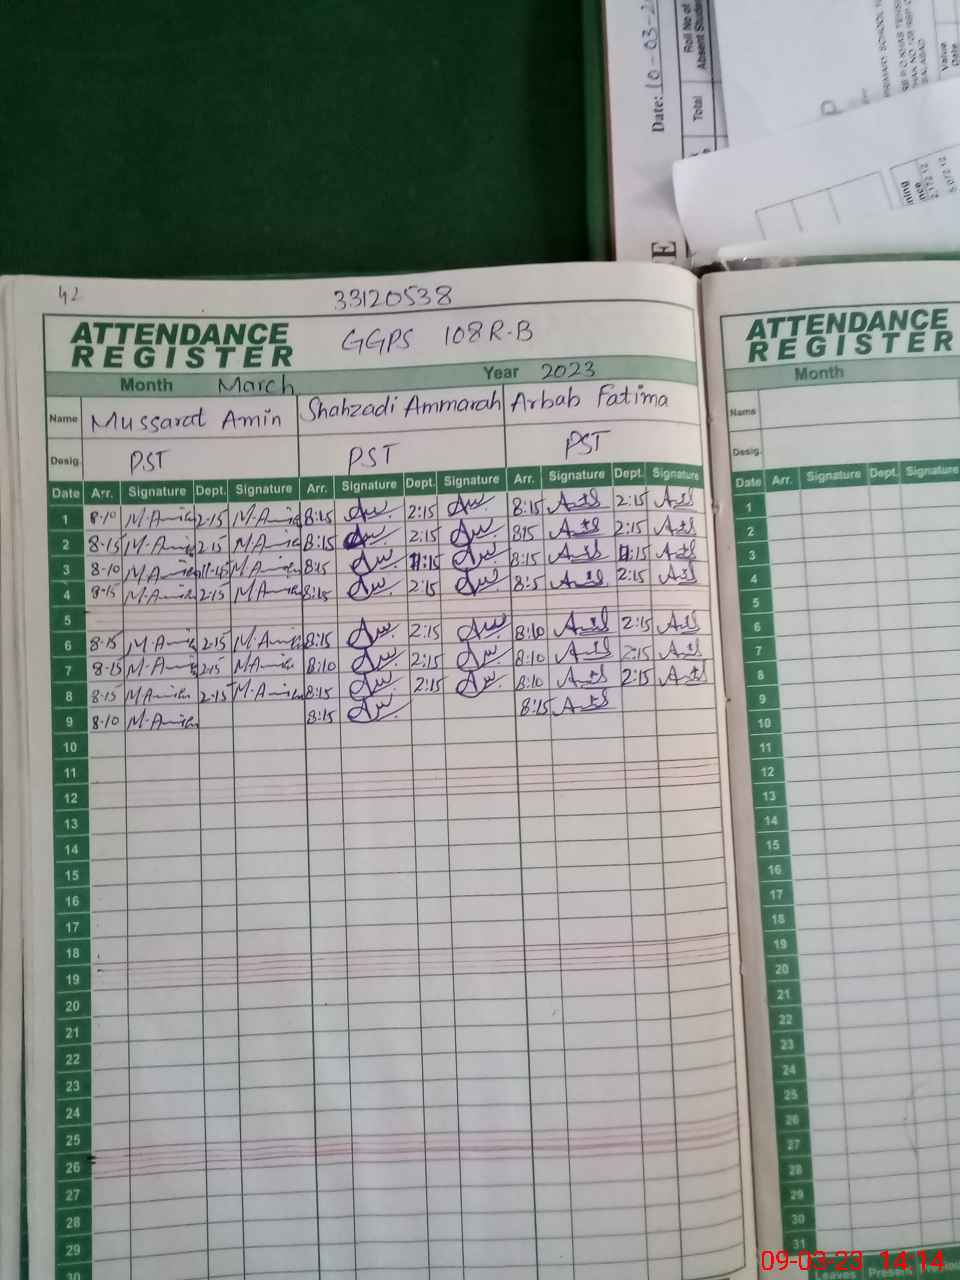 Date: 10-03-2
Roll No of
Absent Stude
Total
PRIMARY SCHOOL
Value
Date
E
42
33120538
ATTENDANCE
REGISTER
GGPS 108 R-B
Month March Year 2023
Name Mussarat Amin Shahzadi Ammarah Arbab Fatima
Desig. PST PST PST
Date Arr. Signature Dept. Signature Arr. Signature Dept. Signature Arr. Signature Dept. Signature
1 8-10 M-Amin 2-15 M-Amin 8:15 2:15 8:15 2:15
2 8-15 M-Amin 2-15 M-Amin 8:15 2:15 815 2:15
3 8-10 M-Amin 11-15 M-Amin 8:15 11:15 8:15 11:15
4 8-15 M-Amin 2-15 M-Amin 8:15 2:15 8:5 2:15
5
6 8-15 M-Amin 2-15 M-Amin 8:15 2:15 8:10 2:15
7 8-15 M-Amin 2-15 M-Amin 8:10 2:15 8:10 2:15
8 8-15 M-Amin 2-15 M-Amin 8:15 2:15 8:10 2:15
9 8-10 M-Amin 8:15 8:15
10
11
12
13
14
15
16
17
18
19
20
21
22
23
24
25
26
27
28
29
30
ATTENDANCE
REGISTER
Month
Name
Desig.
Date Arr. Signature Dept. Signature
1
2
3
4
5
6
7
8
9
10
11
12
13
14
15
16
17
18
19
20
21
22
23
24
25
26
27
28
29
30
31
Leaves
09-03-23 14:14